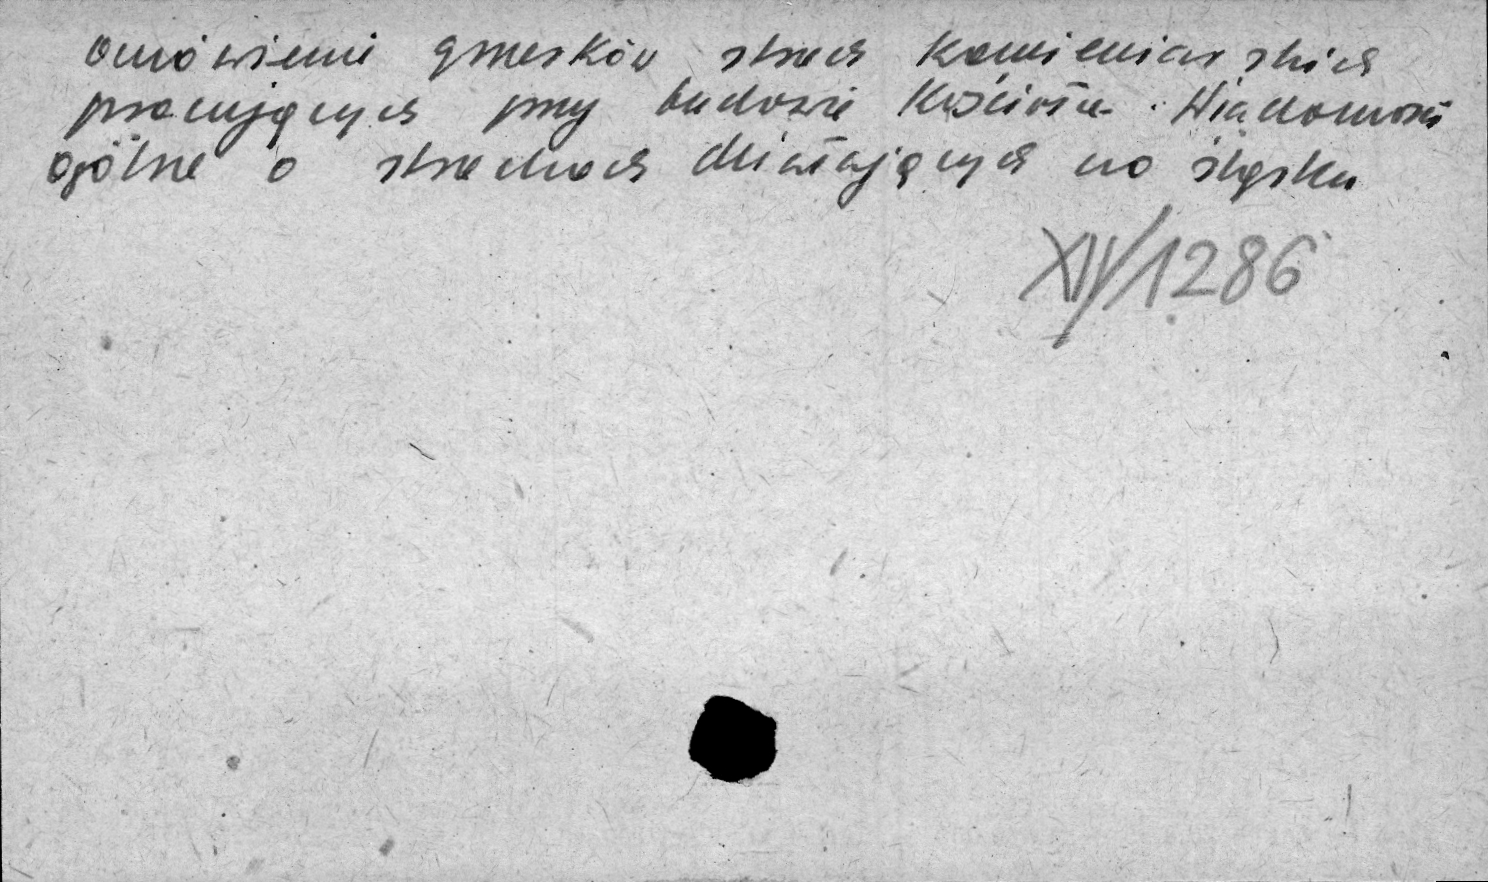 omówienie gmerków strzech kamieniarskich
pracujących przy budowie kościoła. Wiadomości
ogólne o strzechach działających na Śląsku
XIV/1286